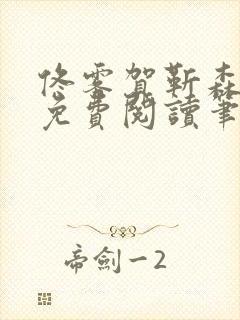 佟雾贺靳森
免費閱讀筆
帝劍一2